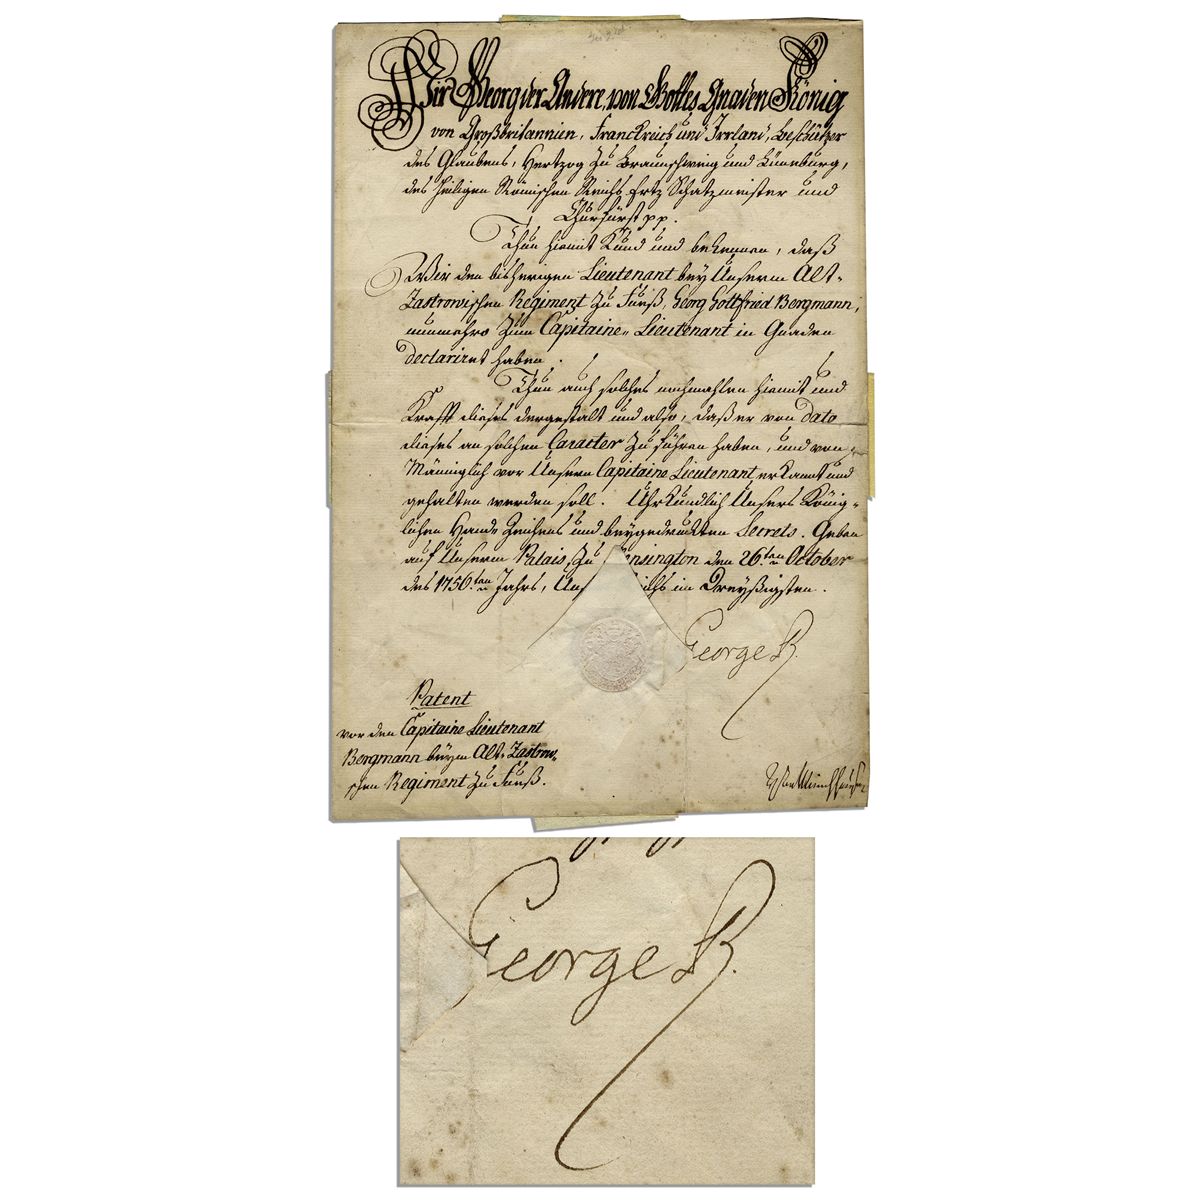 Wir Georg der Andere, von Gottes Gnaden König
von Großbritannien, Franckreich und Irrland, Beschützer
des Glaubens, Hertzog zu Braunschweig und Lüneburg,
des heiligen Römischen Reichs Ertz Schatzmeister und
Churfürst pp.
Thun hiemit Kund und bekennen, daß
Wir den bisherigen Lieutenant bey Unserm Alt-
Zastrowischen Regiment zu Fueß, Georg Gottfried Bergmann,
nunmehro zum Capitaine-Lieutenant in Gnaden
declariret haben.
Thun auch solches nochmahlen hiemit und
Krafft dieses dergestalt und also, daß er von dato
dieses an solchen Caracter zu führen haben, und von
Männiglich vor Unsern Capitaine Lieutenant erkannt und
gehalten werden soll. Uhrkundlich Unsers König-
lichen Hand-Zeichens und beygedruckten Secrets. Geben
auf Unserm Palais zu Kensington den 26.ten October
des 1756.ten Jahrs, Uns Reichs im Dreyßigsten.
George R.
Patent
vor den Capitaine Lieutenant
Bergmann beym Alt-Zastrow-
schen Regiment zu Fueß.
Münchhausen
George R.